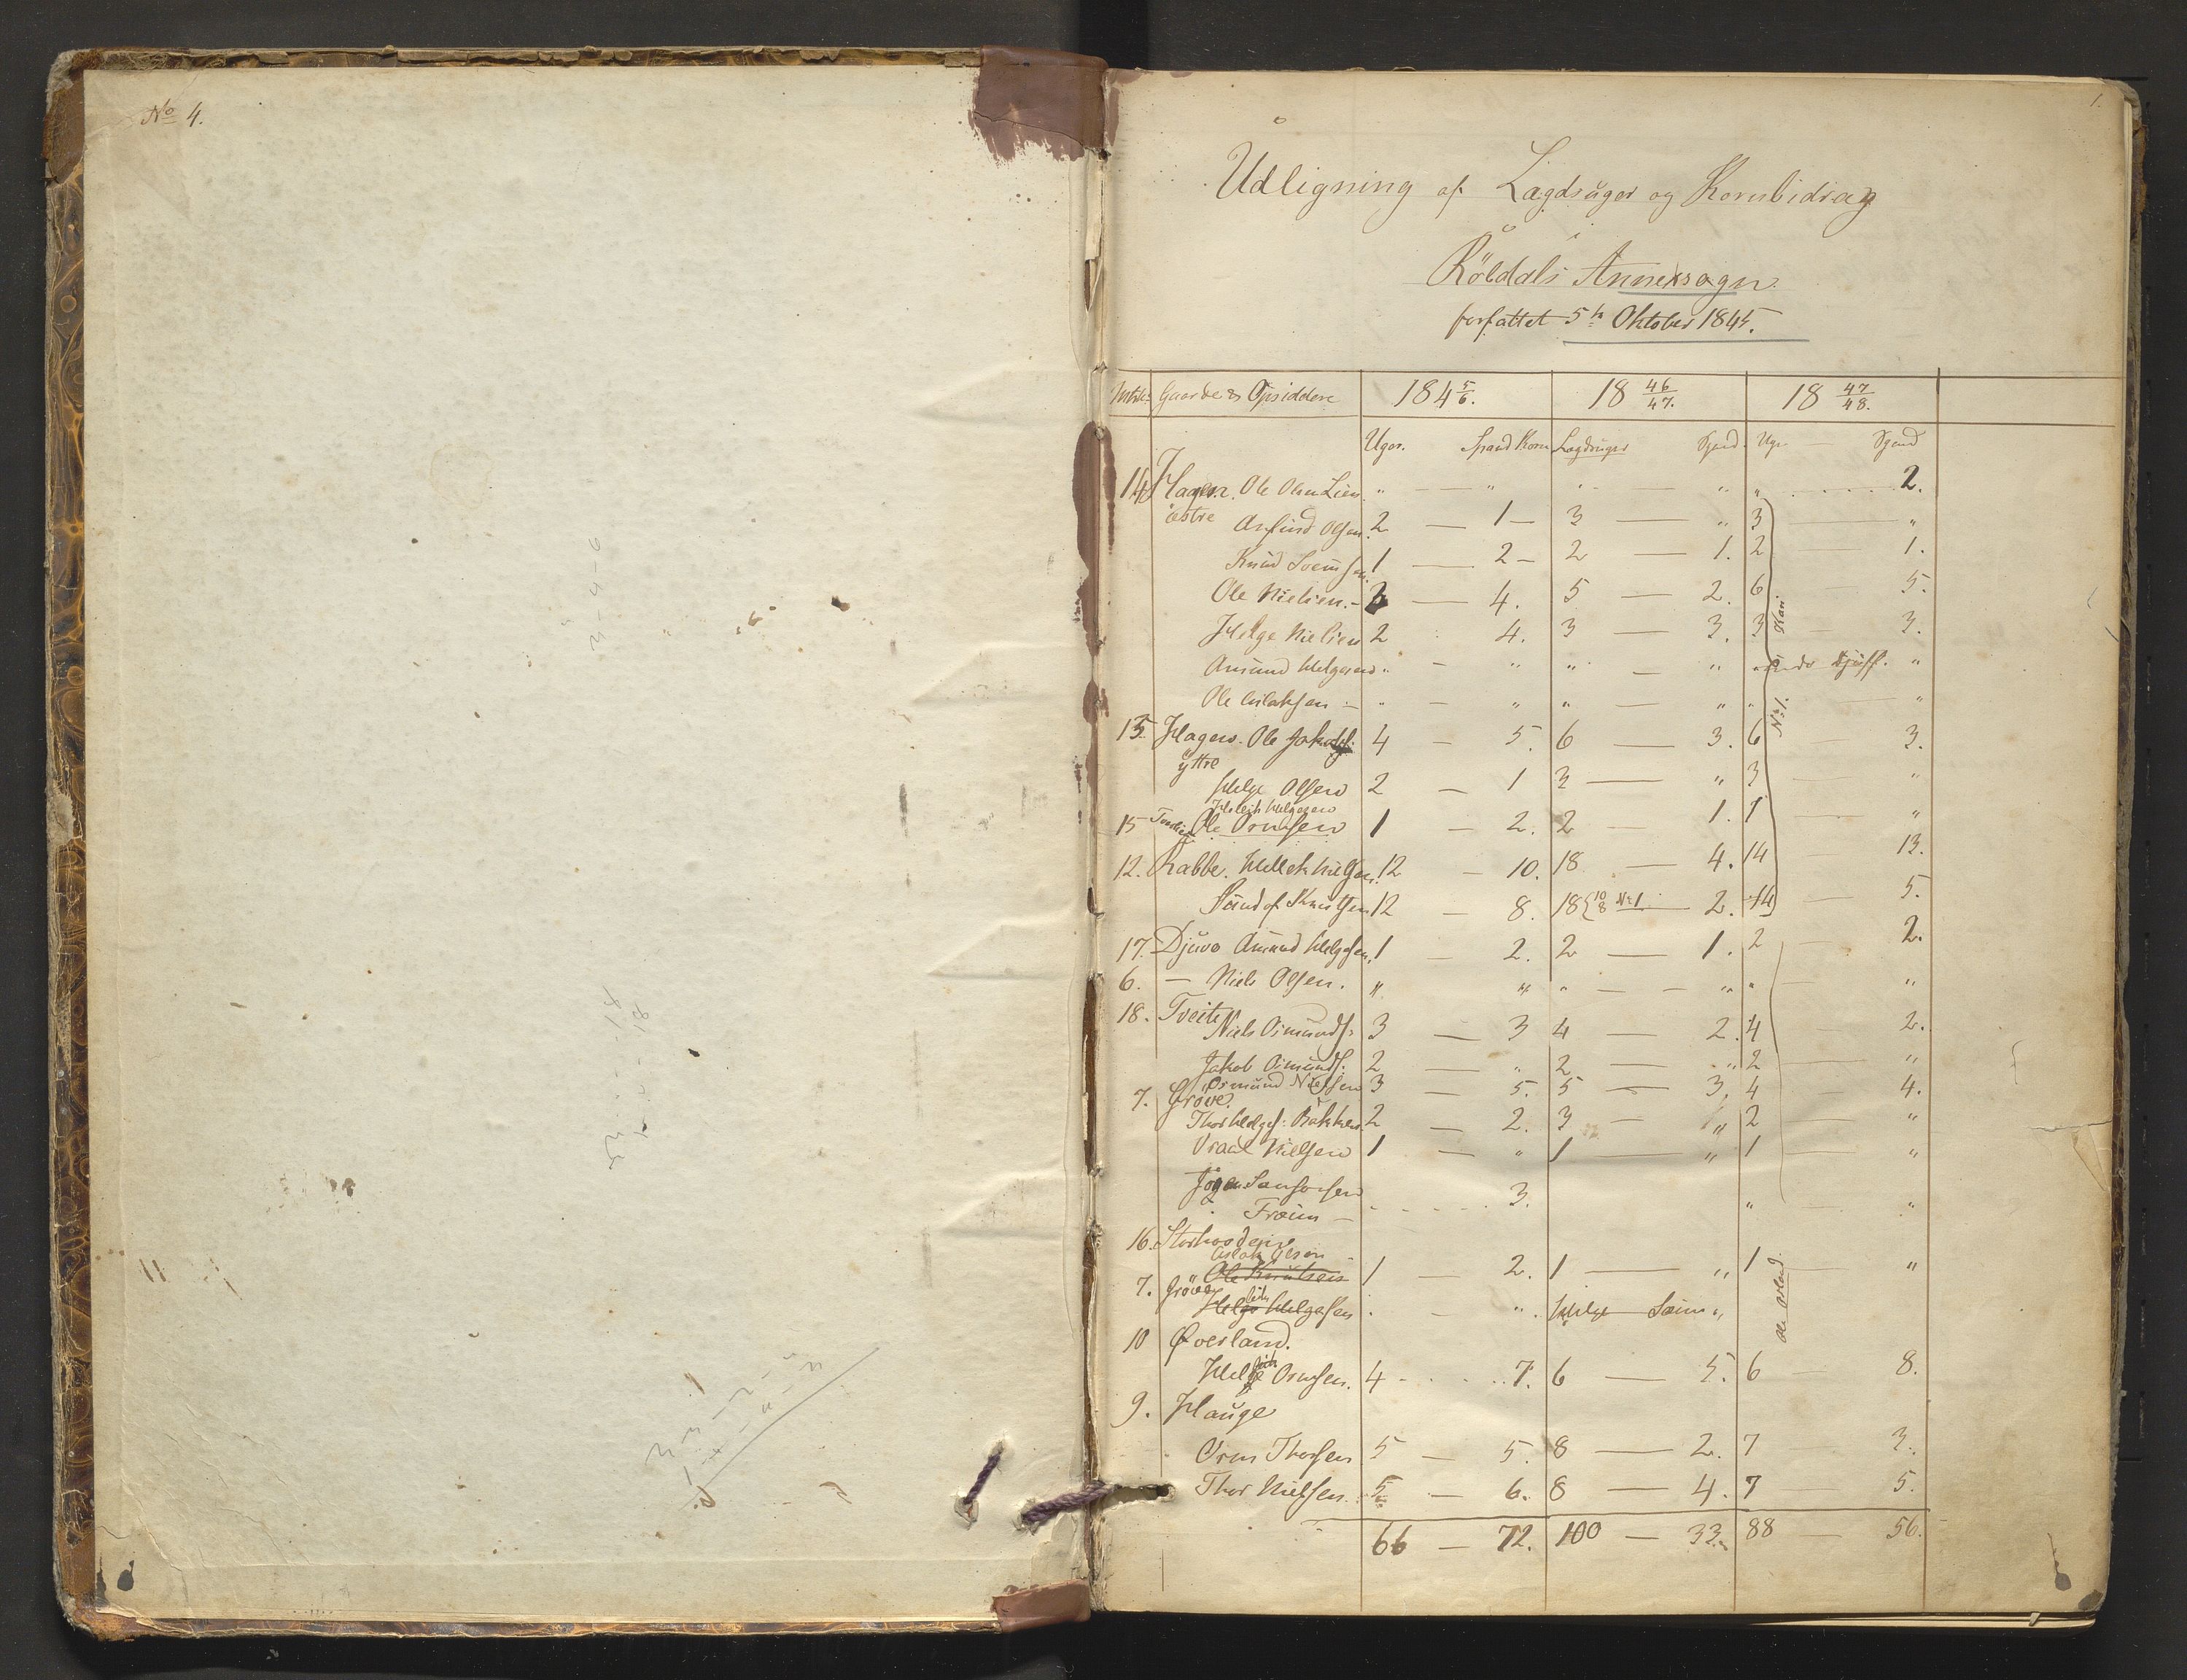 No 4.
1.
Udligning af Lægdsuger og Kornbidrag
i
Röldals Annexsogn
forfattet 5te Oktober 1845.
Matr: Gaarde & Opsiddere 184 5/6. 18 46/47. 18 47/48.
Uger. Spand Korn Lægdsuger Spand. Uger Spand
14 Hagen. Ole Olsen Lien. " — " " — " " . . . . . 2.
östre Arfind Olsen. 2 — 1 — 3 — " 3 — "
Knud Svendsen. 1 — 2 — 2 — 1. 2 — 1.
Ole Nielsen. — 4. 5 — 2. 6 — 5.
Helge Nielsen 2 4. 3 — 3. 3 — 3.
Amund Helgesen " — " " — " "
Ole Aslaksen — " — " " — " " — "
15. Hagen. Ole 4 — 5. 6 — 3. 6 3.
yttre
Helge Olsen 2 — 1 3 — " 3. — "
Helgesen
15 Ole Ormsen 1 — 2. 2 — 1. 1 — "
12. Rabbe. Nielsen. 12 — 10. 18 — 4. 14 — 13.
Knutsen 12 — 8. 18 { 10 8 No 1 — 2. 14 — 5.
17. Djuve Amund Helgesen. 1 — 2. 2 — 1. 2 — 2.
6. — Niels Olsen. " " " — — " " — "
18. Tveite
Niels Osmunds: 3 — 3 4 — 2. 4 — 2.
Jakob Osmunds: 2 — " 2 — " 2 — "
Osmund Nielsen 3 — 5. 5 — 3. 4 — 4.
7. Gröve.
Thor Helges: Bakken. 2 — 2. 3 — " 2 — "
Vraal Nielsen 1 — " 1 — " 1 — "
- - - - - 3. " — "
16.
Aslak Olsen
Ole Knutsen 1 — 2. 1 — " 1 — "
7. Gröve
Helgesen . — ". Helge "
Ole
10 Överland.
Ormsen. 4 - . . . . 7. 6 — 5. 6 — 8.
9. Hauge
Orm Thorsen 5 — 5. 8 — 2. 7 — 3.
Thor Nielsen. 5 — 6. 8 — 4. 7 — 5.
66 — 72. 100 — 33. 88 — 56.